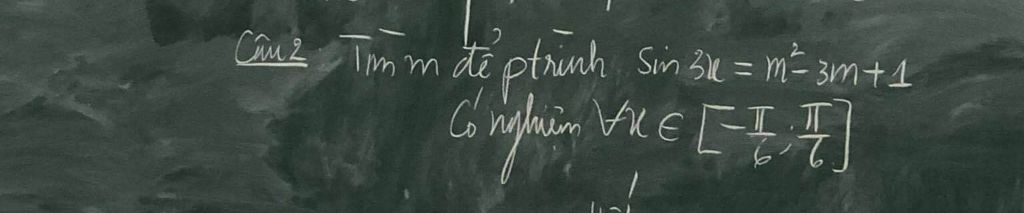 Câu 2 Tìm m để ptrình sin 3x = m² - 3m + 1
Có nghiệm ∀x ∈ [-π/6; π/6]